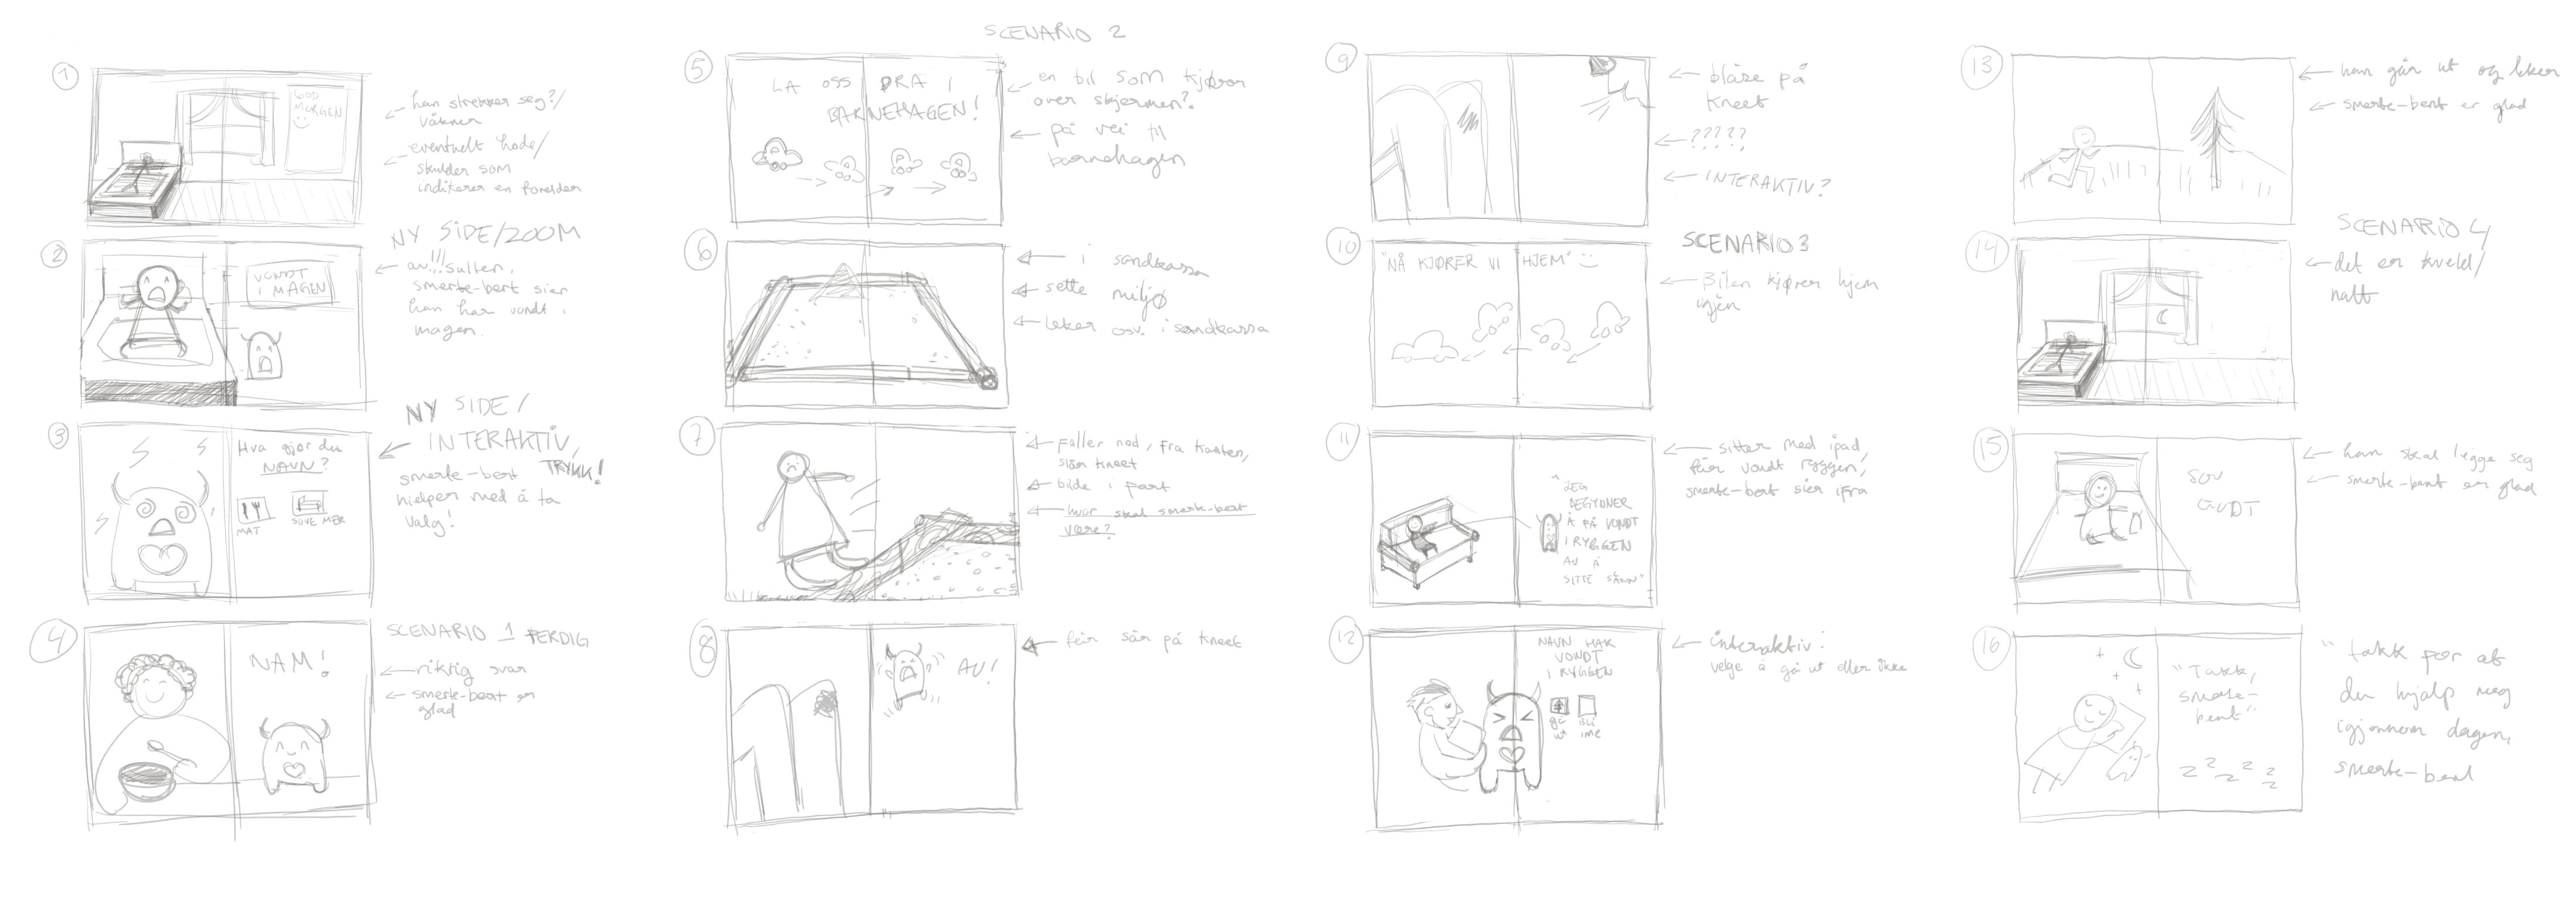 1
GOD
MORGEN
han strekker seg?/
våkner
eventuelt hode/
skulder som
indikerer en forelder
2
VONDT
I MAGEN
NY SIDE/ZOOM
av!!! sulten,
smerte-bert sier
han har vondt i
magen.
3
Hva gjør du
NAVN?
MAT
SOVE MER
NY SIDE/
INTERAKTIV,
TRYKK!
smerte-bert
hjelper med å ta
valg!
4
NAM!
SCENARIO 1 FERDIG
riktig svar
smerte-bert er
glad
SCENARIO 2
5
LA OSS DRA I
BARNEHAGEN!
en bil som kjører
over skjermen?
på vei til
barnehagen
6
i sandkassa
sette miljø
leker osv. i sandkassa
7
faller ned, fra kanten,
slår kneet
bilde i fart
hvor skal smerte-bert
være?
8
AU!
får sår på kneet
9
blåse på
kneet
?????
INTERAKTIV?
10
"NÅ KJØRER VI HJEM"
SCENARIO 3
Bilen kjører hjem
igjen
11
"JEG
BEGYNNER
Å FÅ VONDT
I RYGGEN
AV Å
SITTE SÅNN"
sitter med ipad,
får vondt ryggen,
smerte-bert sier ifra
12
NAVN HAR
VONDT
I RYGGEN
gå
ut
BLI
inne
interaktiv:
velge å gå ut eller ikke
13
han går ut og leker
smerte-bert er glad
14
SCENARIO 4/
det er kveld/
natt
15
SOV
GODT
han skal legge seg
smerte-bert er glad
16
"Takk,
smerte-
bert"
z z z z z z
"takk for at
du hjalp meg
igjennom dagen,
smerte-bert